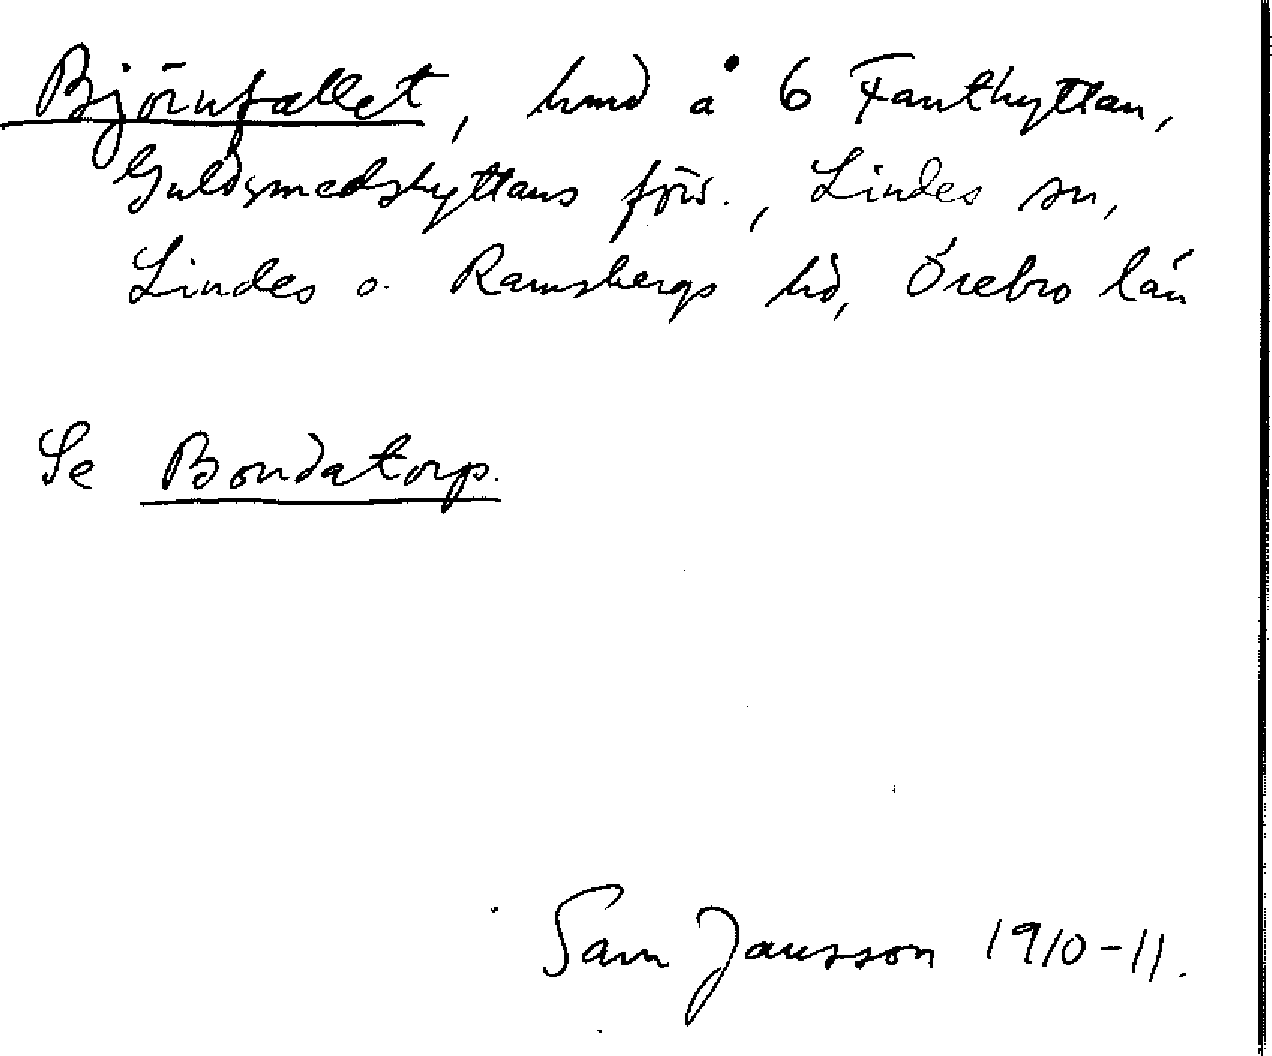 Björnfallet, hmd å 6 Fanthyttan,
Guldsmedshyttans förs., Lindes sn,
Lindes o. Ramsbergs hd, Örebro län
Se Bondatorp.
Sam Jansson 1910-11.